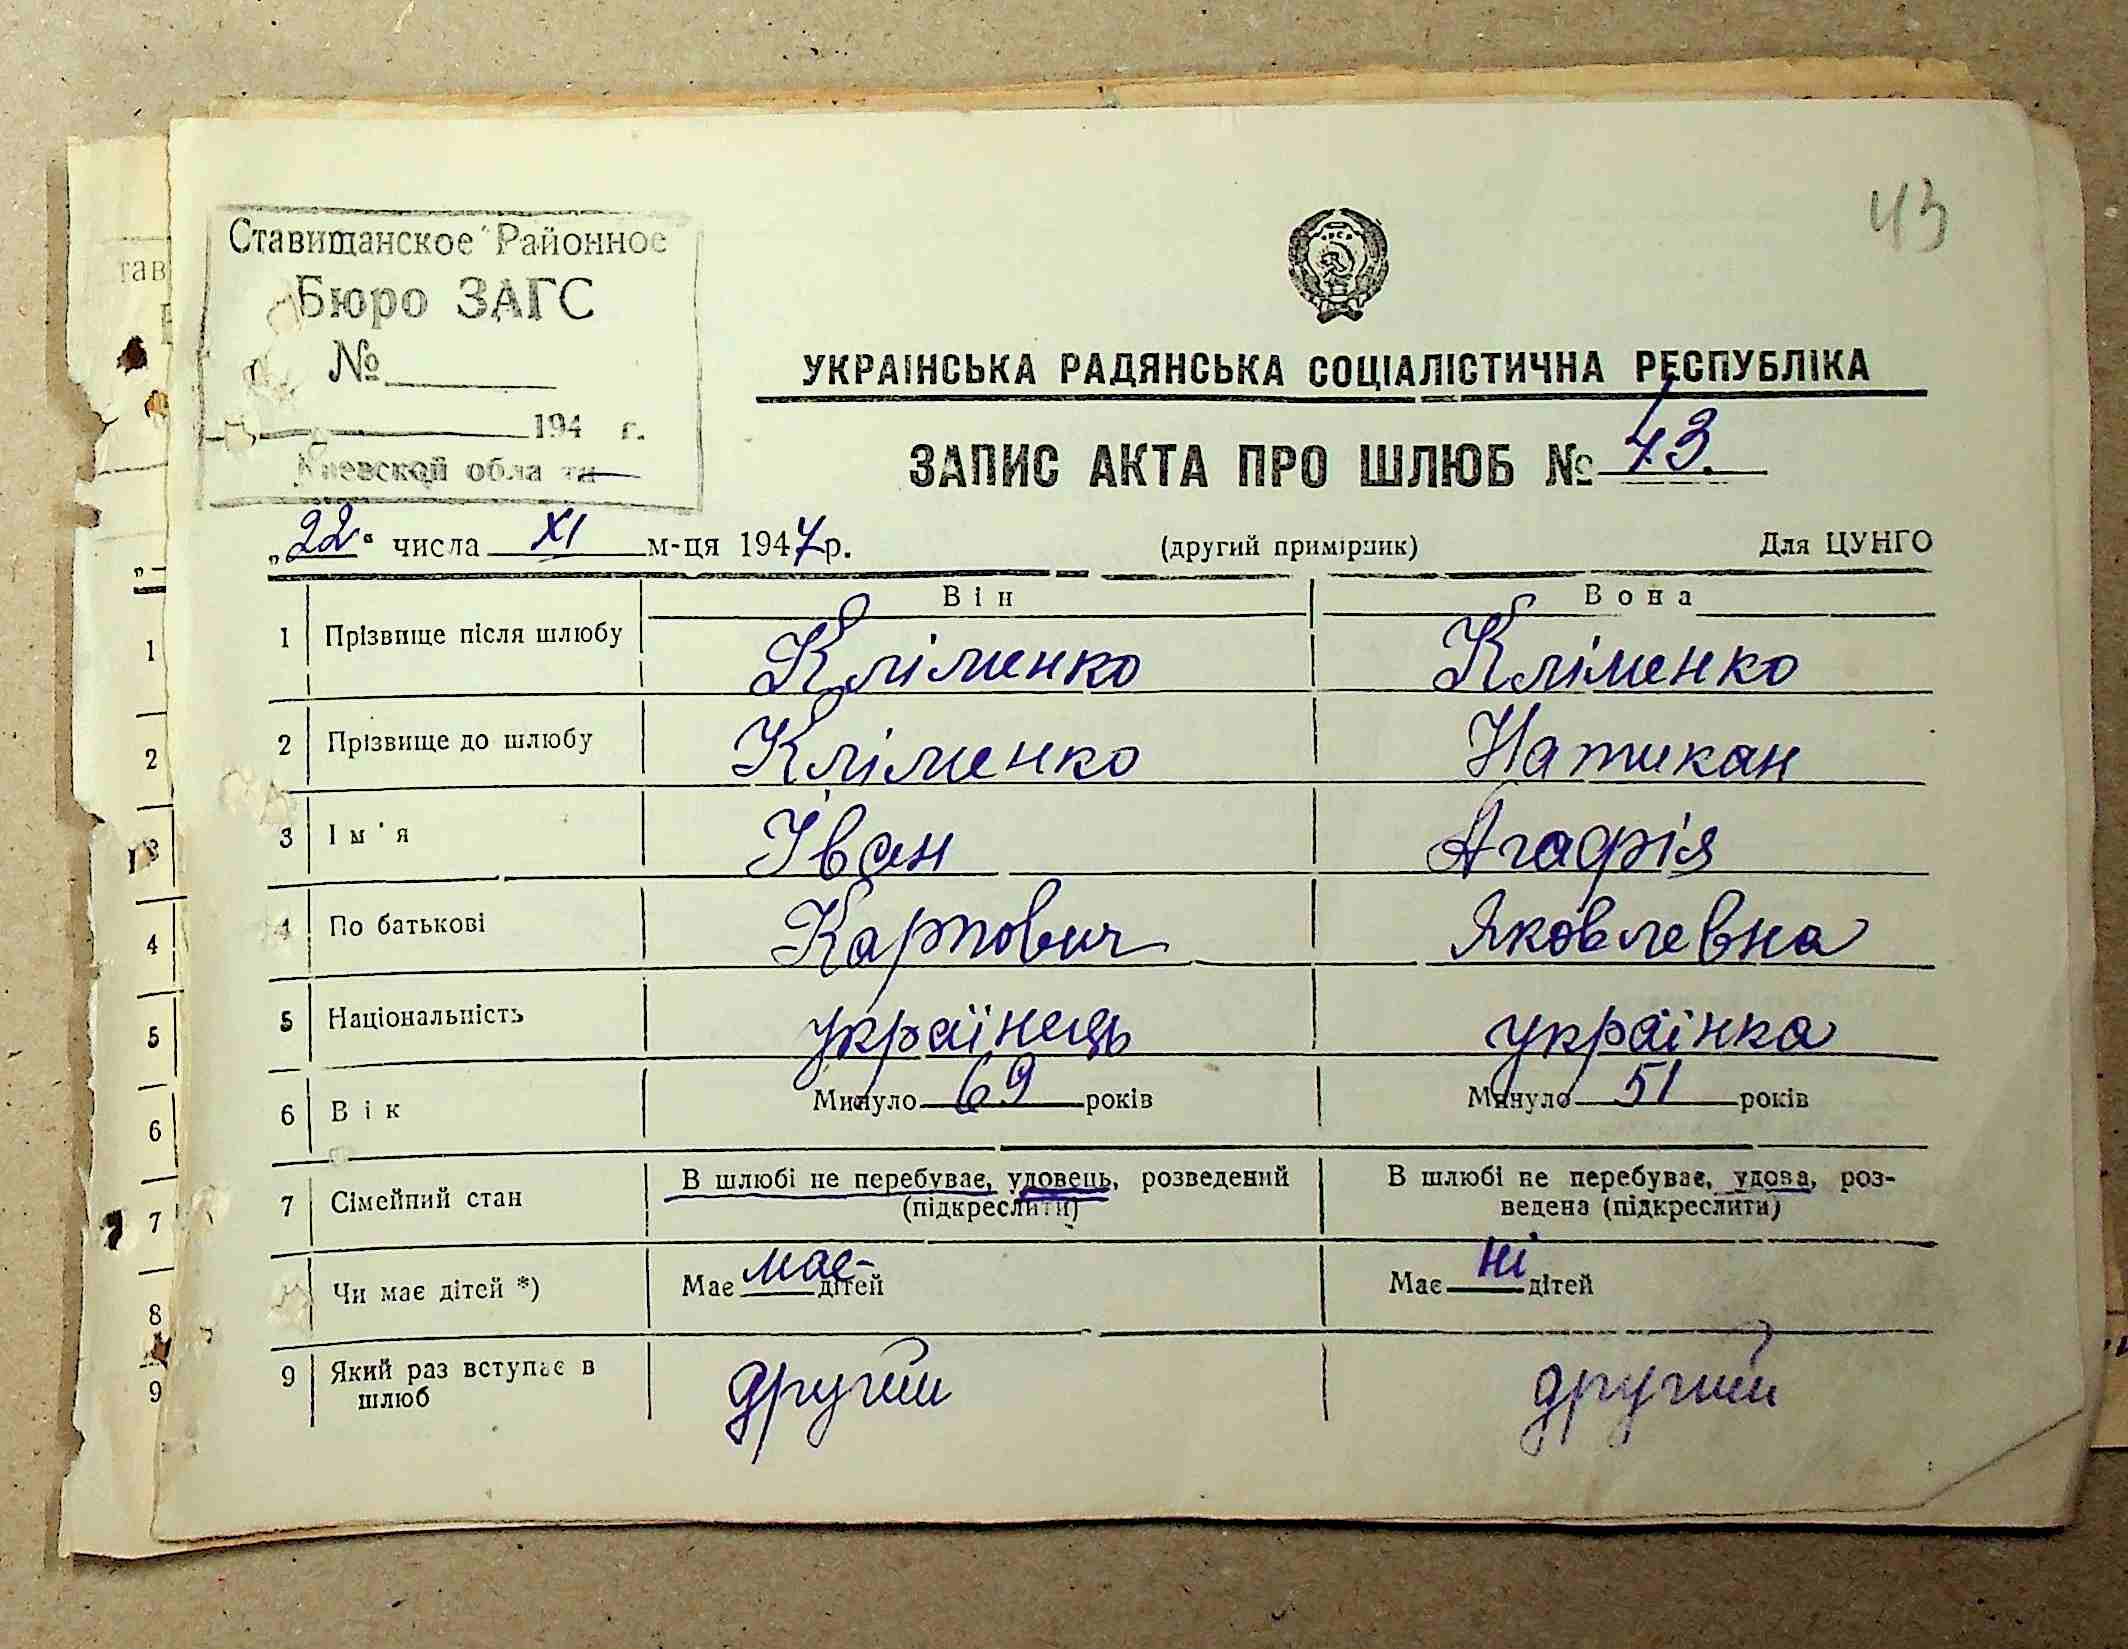 43
Ставищанское Районное
Бюро ЗАГС
№
194 г.
Киевской обла ти
УКРАЇНСЬКА РАДЯНСЬКА СОЦІАЛІСТИЧНА РЕСПУБЛІКА
ЗАПИС АКТА ПРО ШЛЮБ № 43.
„22" числа XI м-ця 1947 р. (другий примірник) Для ЦУНГО
Він Вона
1 Прізвище після шлюбу Кліменко Кліменко
2 Прізвище до шлюбу Кліменко Натикан
3 Ім'я Іван Агафія
4 По батькові Карпович Яковлевна
5 Національність українець українка
6 Вік Минуло 69 років Минуло 51 років
7 Сімейний стан В шлюбі не перебуває, удовець, розведений (підкреслити) В шлюбі не перебуває, удова, роз-
ведена (підкреслити)
Чи має дітей *) Має має дітей Має ні дітей
9 Який раз вступає в шлюб другий другий
тав
1
2
3
4
5
6
7
8
9